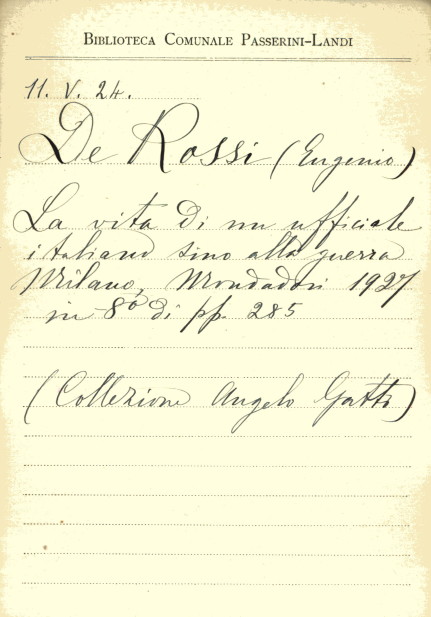 BIBLIOTECA COMUNALE PASSERINI-LANDI
11. V. 24.
De Rossi (Eugenio)
La vita di un ufficiale
italiano sino alla guerra
Milano, Mondadori 1927
in 8º di pp. 285
(Collezione Angelo Gatti)